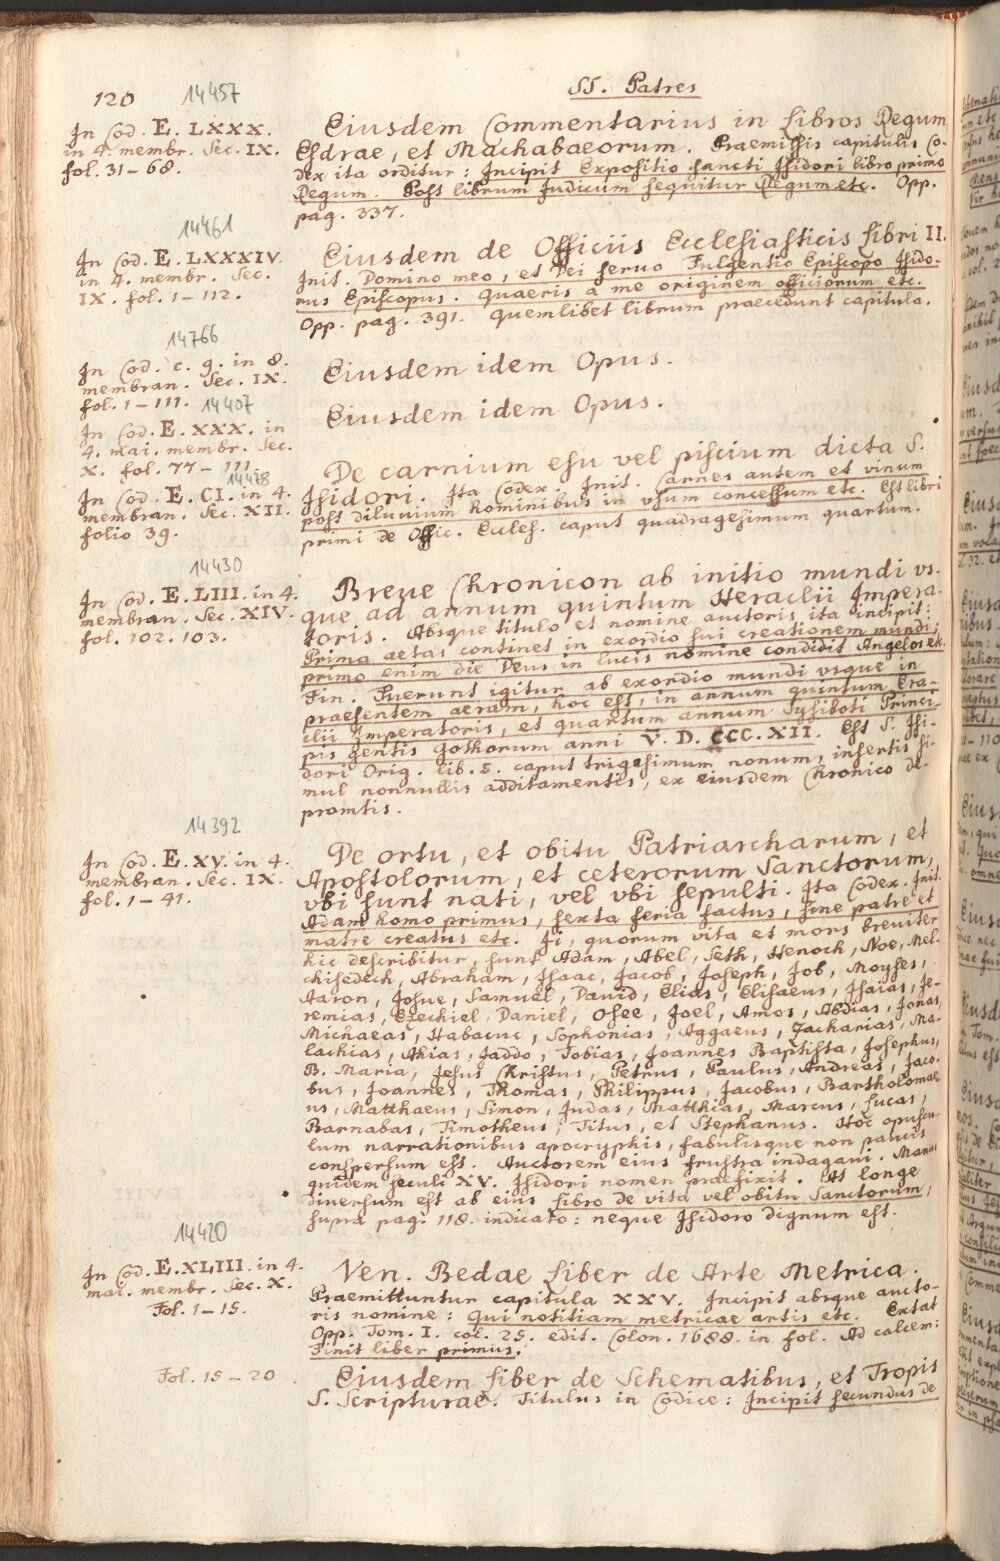 120
14457
SS. Patres
In Cod. E. LXXX.
in 4. membr. Sec. IX.
fol. 31-68.
Eiusdem Commentarius in Libros Regum,
Esdrae, et Machabaeorum. Praemissis capitulis Co-
dex ita orditur: Incipit Expositio sancti Isidori libro primo
Regum. Post librum Iudicum sequitur Regum etc. Opp.
pag. 337.
14461
In Cod. E. LXXXIV.
in 4. membr. Sec.
IX. fol. 1-112.
Eiusdem de Officiis Ecclesiasticis Libri II.
Init. Domino meo, et Dei seruo Fulgentio Episcopo Isido-
rus Episcopus. Quaeris a me originem officiorum etc.
Opp. pag. 391. Quemlibet librum praecedunt capitula.
14766
In Cod. c. 9. in 8.
membran. Sec. IX.
fol. 1-111.
Eiusdem idem Opus.
14407
In Cod. E. XXX. in
4. mai. membr. Sec.
X. fol. 77-111.
Eiusdem idem Opus.
14478
In Cod. E. CI. in 4.
membran. Sec. XII.
folio 39.
De carnium esu vel piscium dicta S.
Isidori. Ita Codex. Init. Carnes autem et vinum
post diluuium hominibus in vsum concessum etc. Est libri
primi de Offic. Eccles. caput quadragesimum quartum.
14430
In Cod. E. LIII. in 4.
membran. Sec. XIV.
fol. 102. 103.
Breue Chronicon ab initio mundi vs-
que ad annum quintum Heraclii Impera-
toris. Absque titulo et nomine auctoris ita incipit:
Prima aetas continet in exordio sui creationem mundi;
primo enim die Deus in lucis nomine condidit Angelos etc.
Fin. Fuerunt igitur ab exordio mundi vsque in
praesentem aeram, hoc est, in annum quintum Era-
clii Imperatoris, et quartum annum Sysiboti Princi-
pis gentis Gothorum anni V. D. CCC. XII. Est S. Isi-
dori Orig. Lib. 5. caput trigesimum nonum, insertis si-
mul nonnullis additamentis, ex eiusdem Chronico de-
promtis.
14392
In Cod. E. XV. in 4.
membran. Sec. IX.
fol. 1-41.
De ortu, et obitu Patriarcharum, et
Apostolorum, et ceterorum Sanctorum,
vbi sunt nati, vel vbi sepulti. Ita Codex. Init.
Adam homo primus, sexta feria factus, sine patre et
matre creatus etc. Ii, quorum vita et mors breuiter
hic describitur, sunt Adam, Abel, Seth, Henoch, Noe, Mel-
chisedech, Abraham, Isaac, Jacob, Joseph, Job, Moyses,
Aaron, Josue, Samuel, Dauid, Elias, Elisaeus, Isaias, Je-
remias, Ezechiel, Daniel, Osee, Joel, Amos, Abdias, Jonas,
Michaeas, Habacuc, Sophonias, Aggaeus, Zacharias, Ma-
lachias, Ahias, Jaddo, Tobias, Joannes Baptista, Josephus,
B. Maria, Jesus Christus, Petrus, Paulus, Andreas, Jaco-
bus, Joannes, Thomas, Philippus, Jacobus, Bartholomae-
us, Matthaeus, Simon, Judas, Matthias, Marcus, Lucas,
Barnabas, Timotheus, Titus, et Stephanus. Hoc opuscu-
lum narrationibus apocryphis, fabulisque non paucis
conspersum est. Auctorem eius frustra indagaui. Manus
quidem seculi XV. Isidori nomen praefixit. At longe
diuersum est ab eius Libro de vita vel obitu Sanctorum,
supra pag. 118. indicato: neque Isidoro dignum est.
14420
In Cod. E. XLIII. in 4.
mai. membr. Sec. X.
Fol. 1-15.
Ven. Bedae Liber de Arte Metrica.
Praemittuntur capitula XXV. Incipit absque aucto-
ris nomine: Qui notitiam metricae artis etc. Extat
Opp. Tom. I. col. 25. edit. Colon. 1688. in fol. Ad calcem:
Finit liber primus.
Fol. 15-20
Eiusdem Liber de Schematibus, et Tropis
S. Scripturae. Titulus in Codice: Incipit secundus de